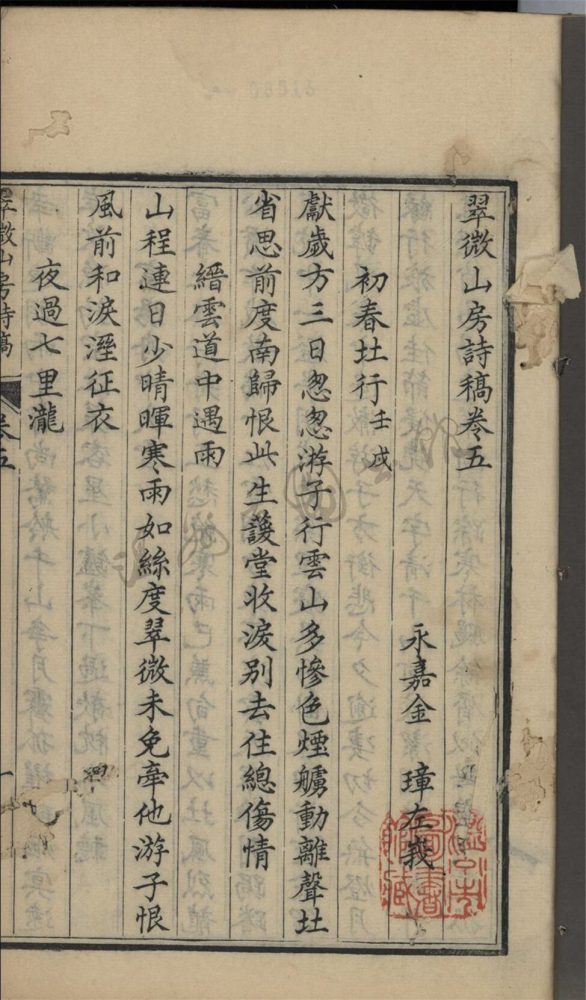 翠微山房詩稿卷五
永嘉金 璋左羲
初春北行壬戌
獻歲方三日忽忽游子行雲山多慘色煙艫動離聲北
省思前度南歸恨此生護堂收淚別去住總傷情
縉雲道中遇雨
山程連日少晴暉寒雨如絲度翠微未免牽他游子恨
風前和淚溼征衣
夜過七里瀧
翠微山房詩稿 卷五 一